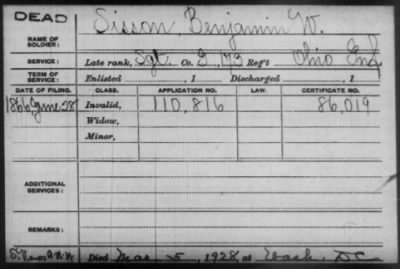 DEAD
NAME OF SOLDIER: Sisson, Benjamin W.
SERVICE: Late rank, Sgt. Co. G, 173 Reg't Ohio Inf
TERM OF SERVICE: Enlisted , 1 Discharged , 1
DATE OF FILING. CLASS. APPLICATION NO. LAW. CERTIFICATE NO.
1866 June 28 Invalid, 110,816 86,019
Widow,
Minor,
ADDITIONAL SERVICES:
REMARKS:
Died Mar 5, 1928, at Wash, DC